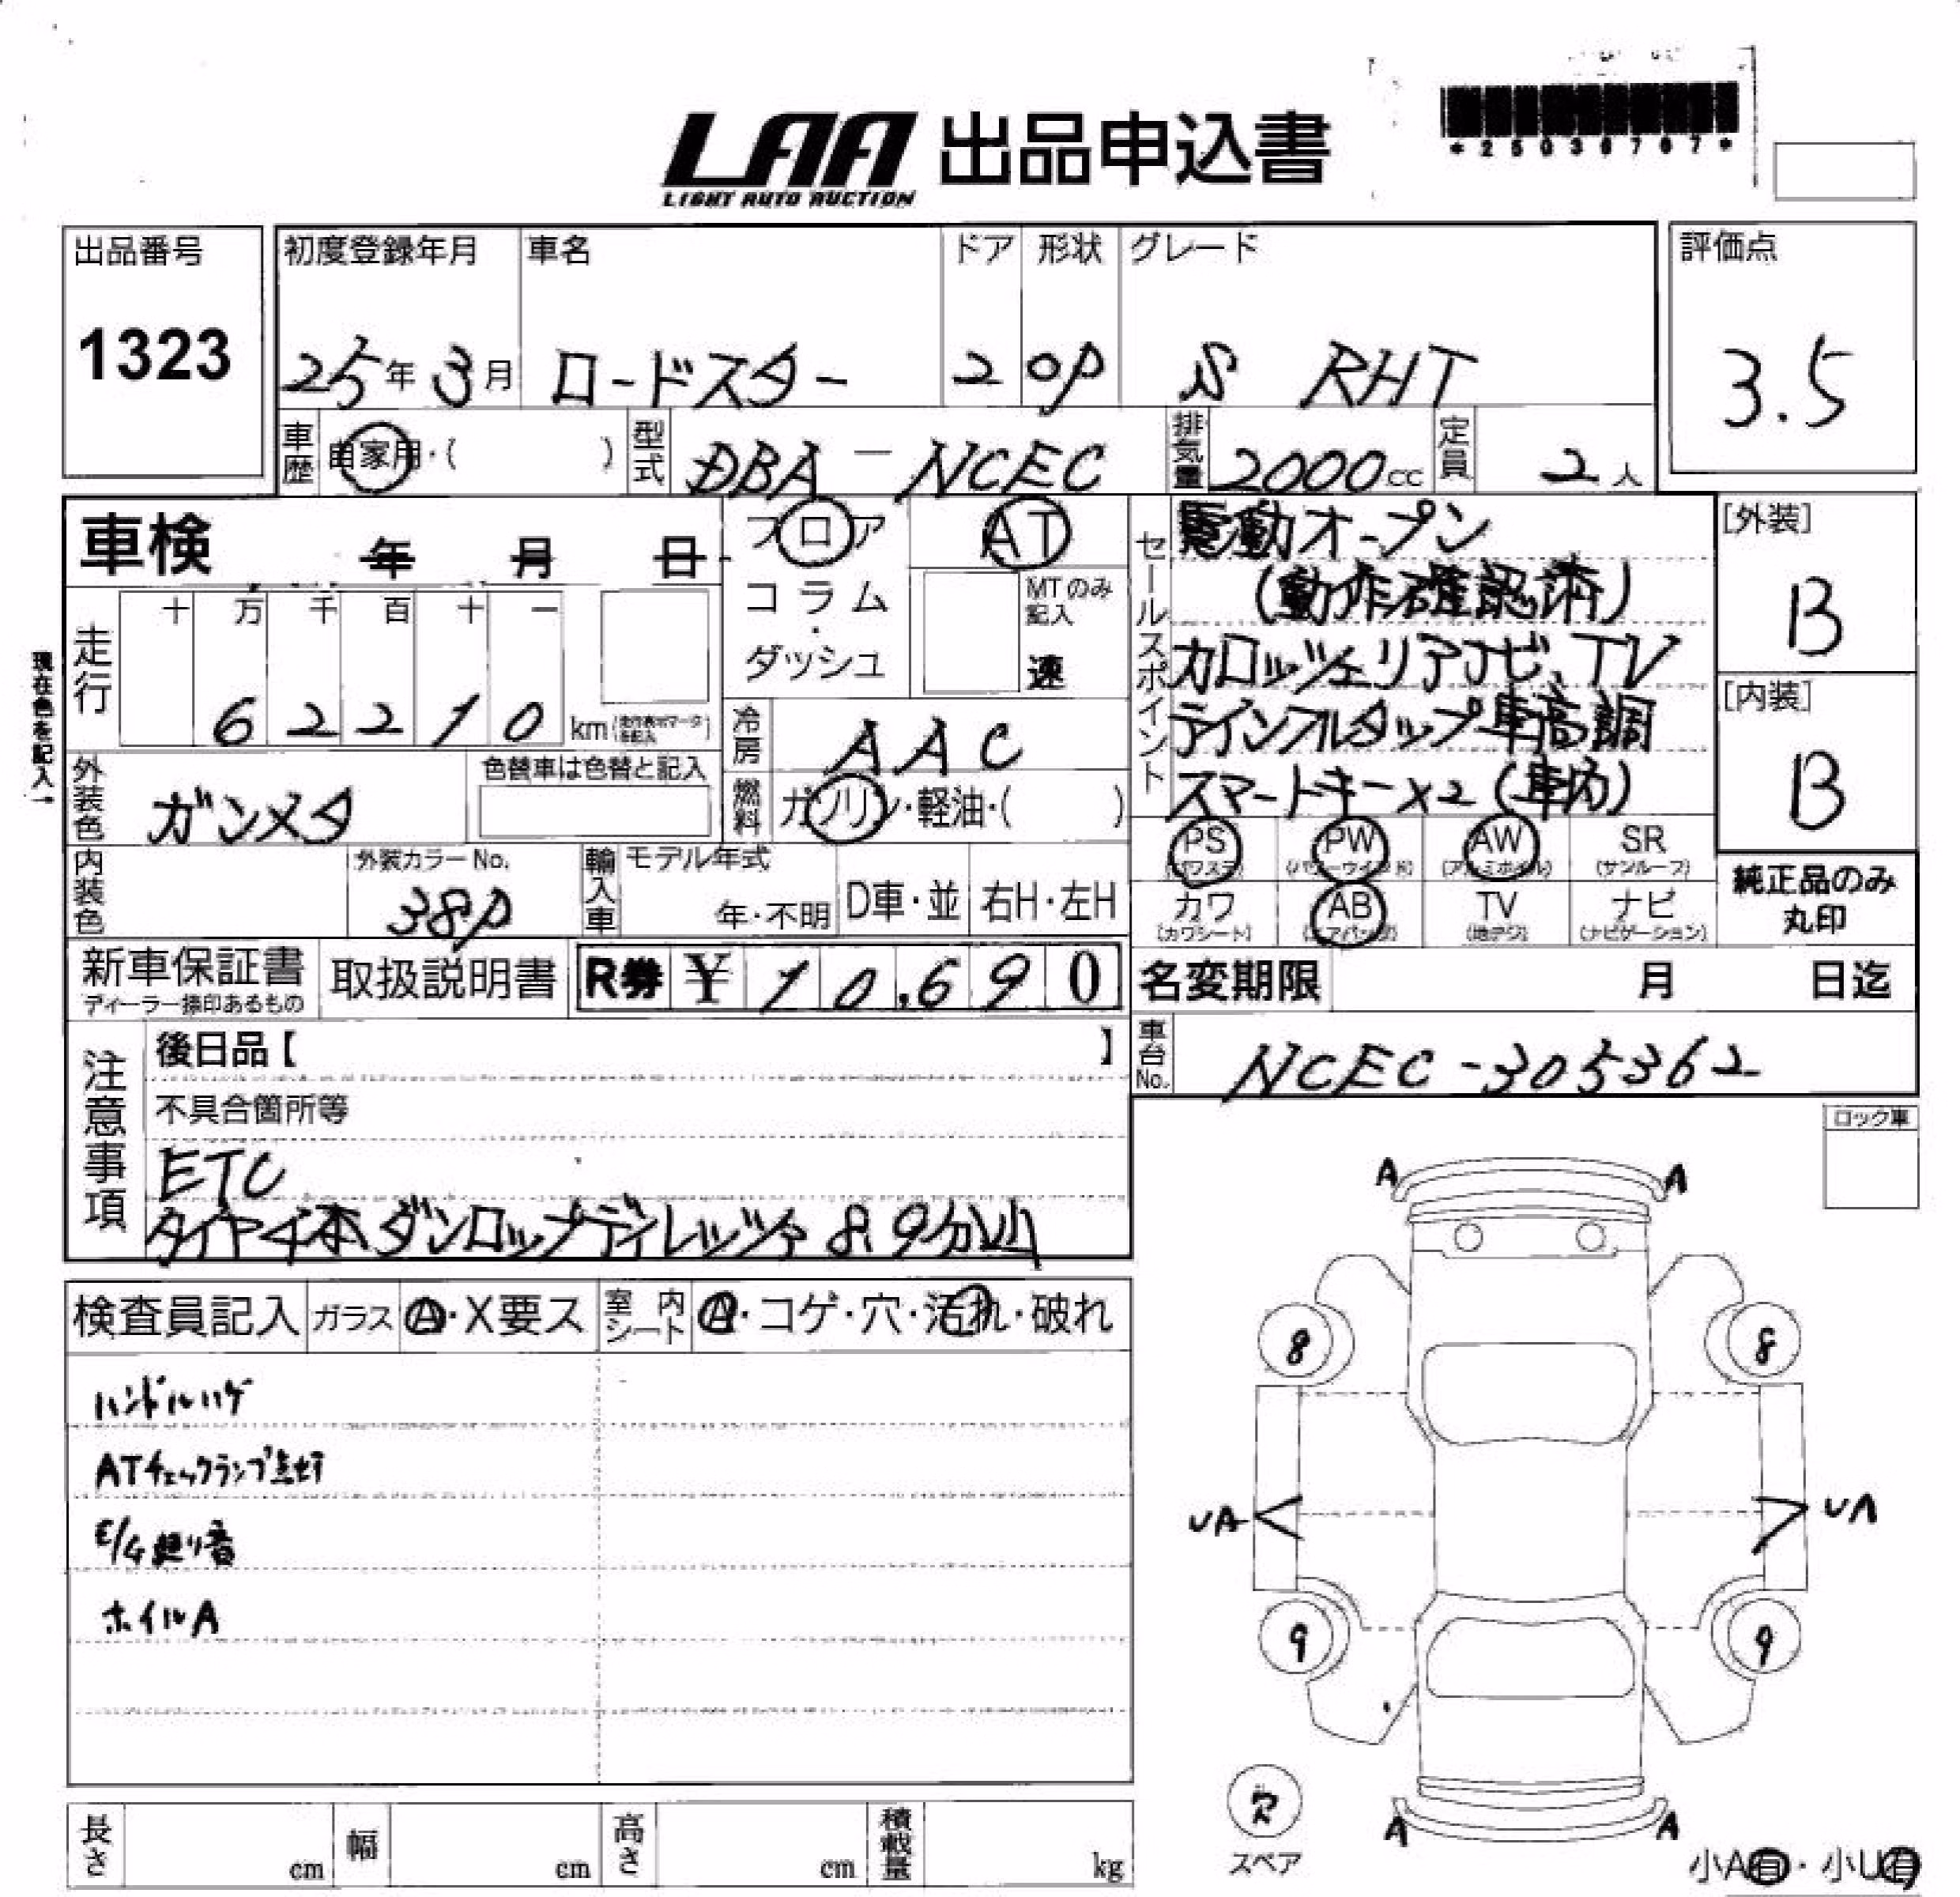 LAA 出品申込書
LIGHT AUTO AUCTION
出品番号
1323
初度登録年月
25年 3月
車名
ロードスター
ドア
2
形状
OP
グレード
S RHT
評価点
3.5
車歴 自家用・( )
型式 DBA-NCEC
排気量 2000cc
定員 2人
車検 年 月 日
フロア
コラム・ダッシュ
AT
MTのみ記入
速
セールスポイント
電動オープン
(動作確認済)
カロッツェリアナビ、TV
テインフルタップ車高調
スマートキー×2 (車内)
[外装]
B
[内装]
B
現在色を記入→
走行
十 万 千 百 十 一
6 2 2 1 0 km
冷房 AAC
燃料 ガソリン・軽油・( )
外装色 ガンメタ
色替車は色替と記入
内装色
外装カラーNo.
38P
輸入車
モデル年式
年・不明
D車・並
右H・左H
PS (パワステ)
PW (パワーウインド)
AW (アルミホイル)
SR (サンルーフ)
カワ (カワシート)
AB (エアバッグ)
TV (地デジ)
ナビ (ナビゲーション)
純正品のみ
丸印
新車保証書
取扱説明書
R券 ¥10,690
名変期限 月 日迄
車台No. NCEC-305362
注意事項
後日品【 】
不具合箇所等
ETC
タイヤ4本ダンロップディレッツァ 8.9分山
ロック車
検査員記入
ガラス A・X要ス
室内シート A・コゲ・穴・汚れ・破れ
ハンドルハゲ
ATチェックランプ点灯
E/G廻り音
ホイルA
A A
8 8
UA UA
9 9
A A
スペア
小A有・小U有
長さ cm
幅 cm
高さ cm
積載量 kg